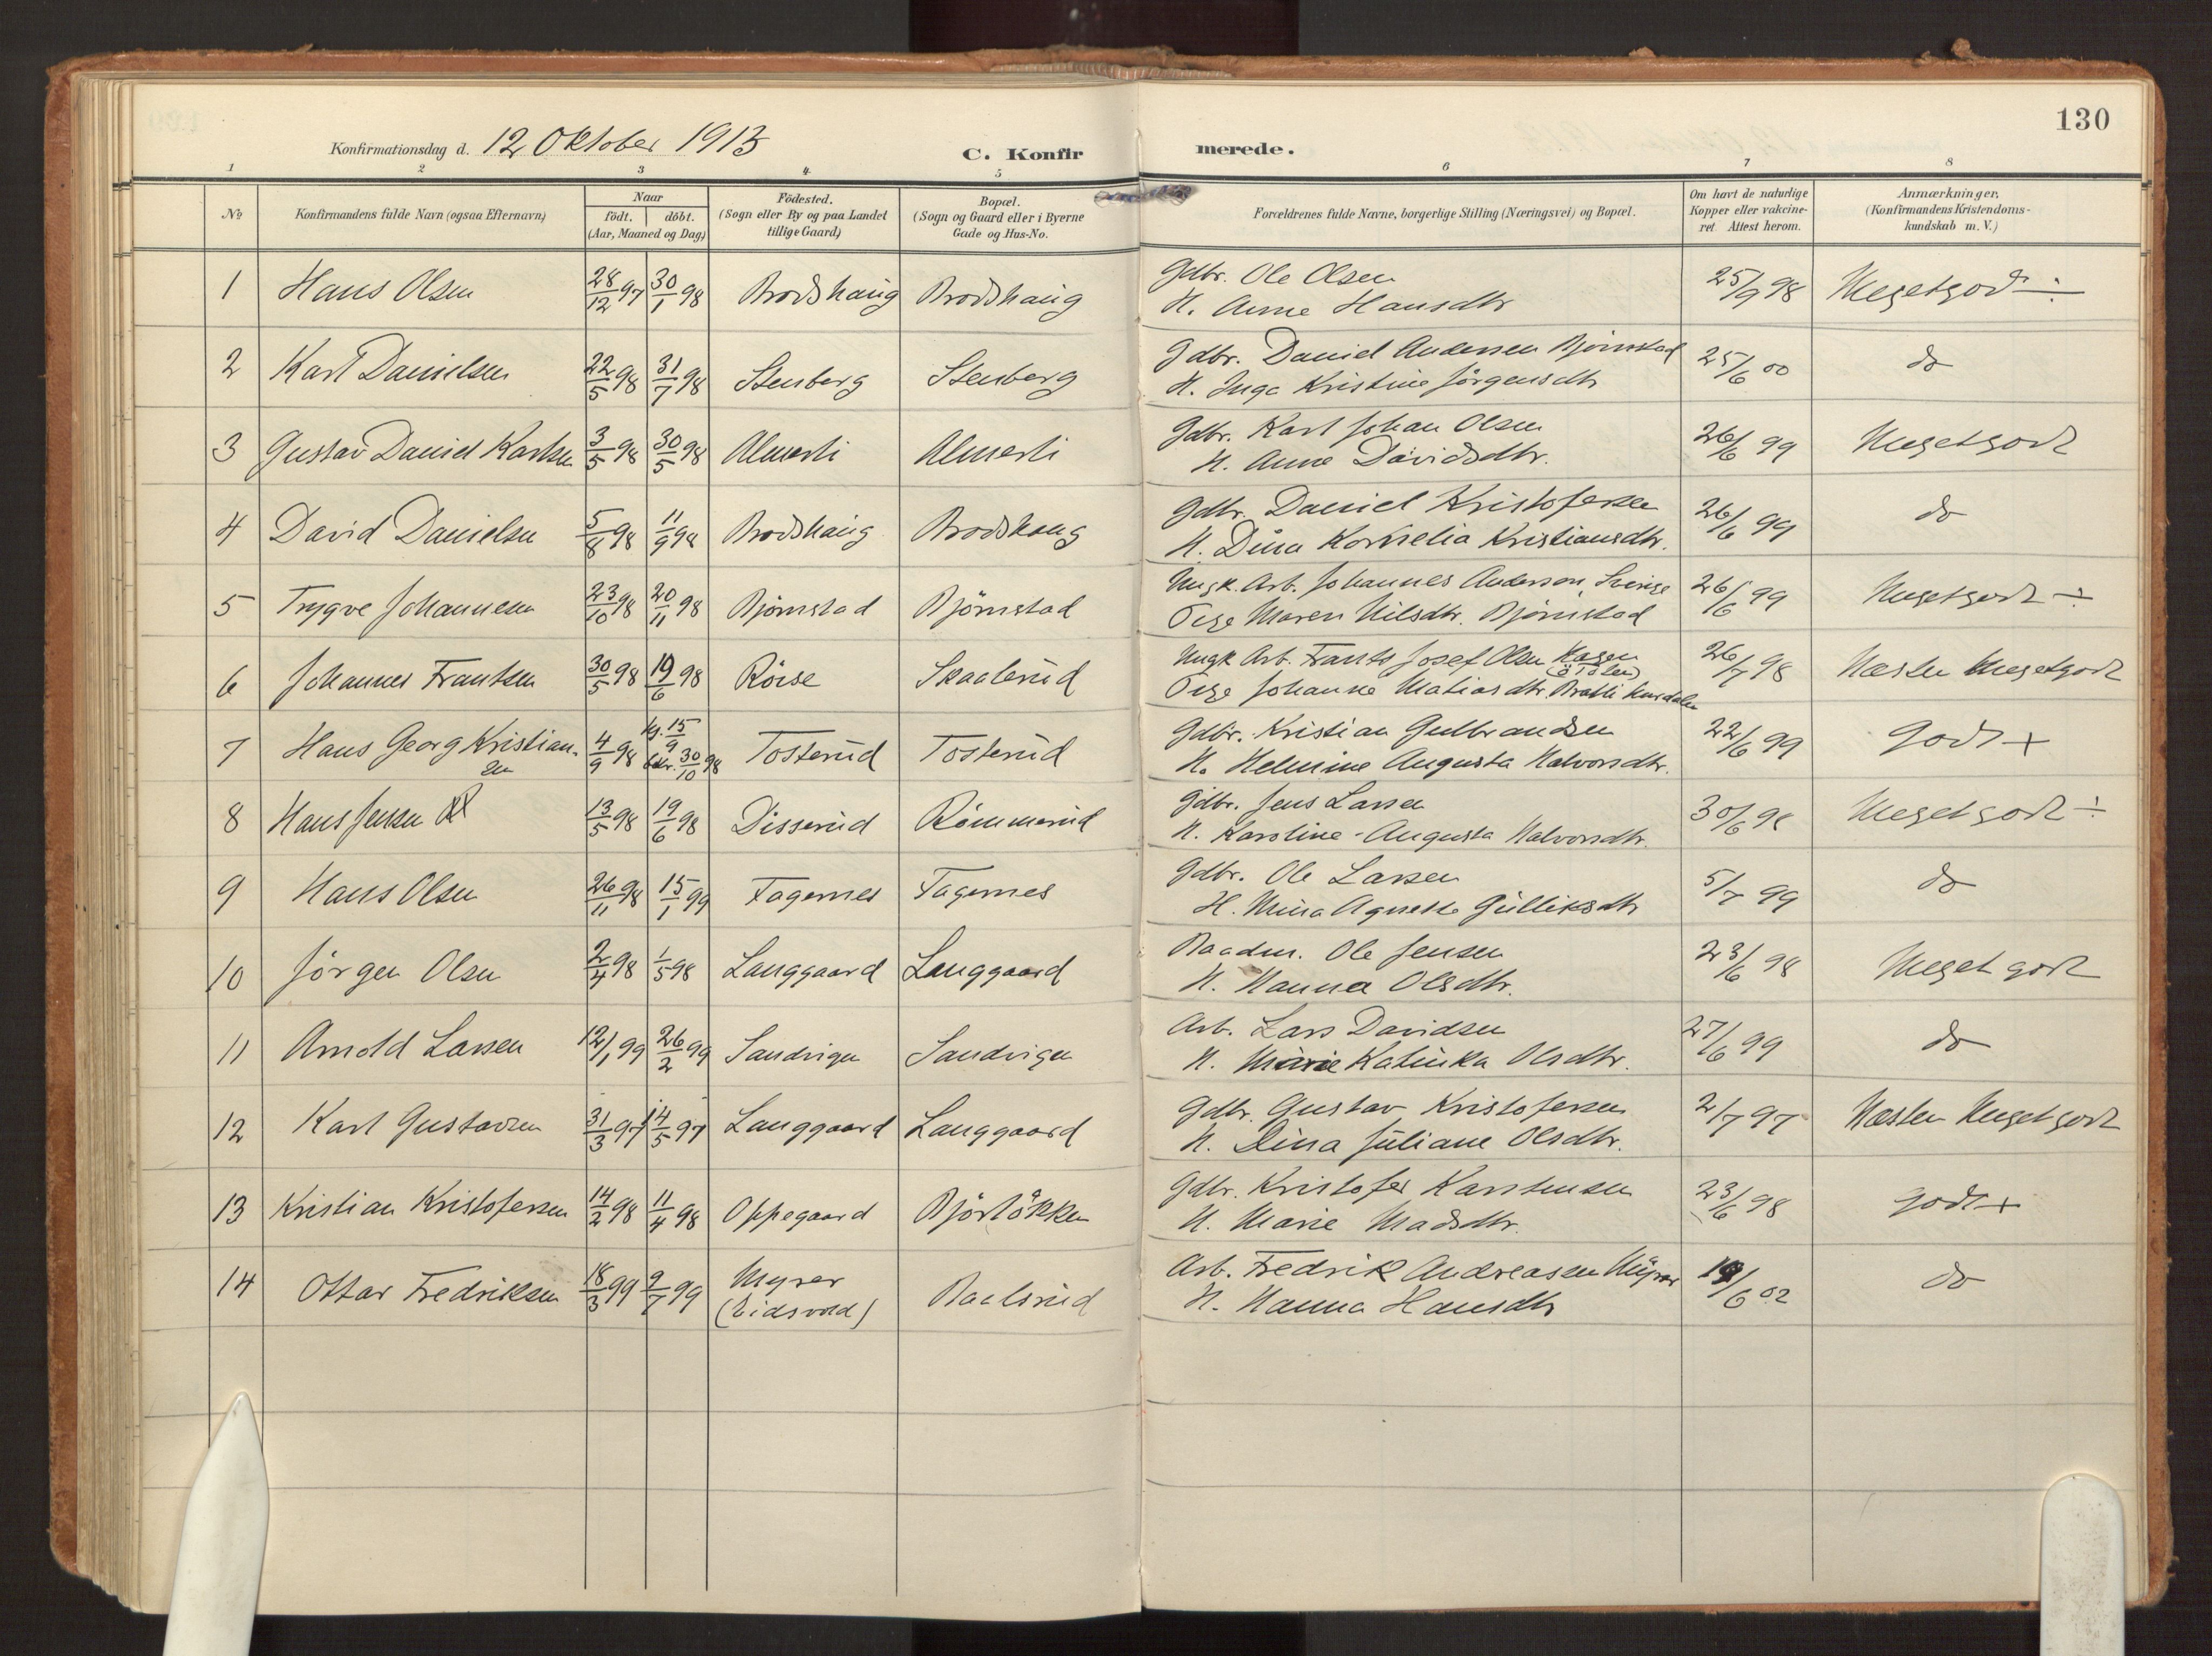 130
Konfirmationsdag d. 12 Oktober 1913
C. Konfirmerede.
1 2 3 4 5 6 7 8
№
Konfirmandens fulde Navn (ogsaa Efternavn)
Naar
födt. döbt.
(Aar, Maaned og Dag)
Födested.
(Sogn eller By og paa Landet
tillige Gaard)
Bopæl.
(Sogn og Gaard eller i Byerne
Gade og Hus-No.
Forældrenes fulde Navne, borgerlige Stilling (Næringsvei) og Bopæl.
Om havt de naturlige
Kopper eller vakcine-
ret Attest herom.
Anmærkninger,
(Konfirmandens Kristendoms-
kundskab m. V.)
1 Hans Olsen 28/12 97 30/1 98 Brodshaug Brodshaug Gdbr. Ole Olsen 25/9 98 Megetgodt ÷
H. Anne Hansdtr
2 Karl Danielsen 22/5 98 31/7 98 Stenberg Stenberg Gdbr. Daniel Andersen Björnstad 25/6 00 do
H. Inga Kristine Jörgensdtr
3 Gustav Daniel Karlsen 3/5 98 30/5 98 Almerli Almerli Gdbr. Karl Johan Olsen 26/6 99 Megetgodt
H. Anne Davidsdtr.
4 David Danielsen 5/8 98 11/9 98 Brodshaug Brodshaug Gdbr. Daniel Kristofersen 26/6 99 do
H. Dina Kornelia Kristiansdtr.
5 Trygve Johannesen 23/10 98 20/11 98 Björnstad Björnstad Ungk. Arb. Johannes Anderson, Sverige 26/6 99 Megetgodt ÷
Pige Maren Nilsdtr. Björnstad
6 Johannes Frantsen 30/5 98 19/6 98 Röise Skaalerud Ungk Arb. Frants Josef Olsen Hagen 26/7 98 Næsten Megetgodt
Pige Johanne Matiasdtr. Bratli Hurdalen
7 Hans Georg Kristian- 4/9 98 hj. 15/9 Tosterud Tosterud Gdbr. Kristian Gulbrandsen 22/6 99 Godt +
sen 30/10 98 H. Helmine Augusta Halvorsdtr.
8 Hans Jensen 13/5 98 19/6 98 Disserud Römmerud Gdbr. Jens Larsen 30/6 98 Megetgodt ÷
H. Karoline-Augusta Halvorsdtr.
9 Hans Olsen 26/11 98 15/1 99 Fagernes Fagernes Gdbr. Ole Larsen 5/7 99 do
H. Mina Agnethe Gulliksdtr
10 Jörgen Olsen 2/4 98 1/5 98 Langgaard Langgaard Baadm. Ole Jensen 23/6 98 Meget godt
H. Hanna Olsdtr.
11 Arnold Larsen 12/1 99 26/2 99 Sandvigen Sandvigen Arb. Lars Davidsen 27/6 99 do
H. Marie Katinka Olsdtr.
12 Karl Gustavsen 31/3 97 14/5 97 Langgaard Langgaard Gdbr. Gustav Kristofersen 2/7 97 Næsten Megetgodt
H. Dina Juliane Olsdtr.
13 Kristian Kristofersen 14/2 98 11/4 98 Oppegaard Björlökken Gdbr. Kristofer Karstensen 23/6 98 Godt +
H. Marie Madsdtr.
14 Ottar Fredriksen 18/3 99 9/7 99 Myrer Baalsrud Arb. Fredrik Andreassen Myrer 19/6 02 do
(Eidsvold) H. Hanna Hansdtr